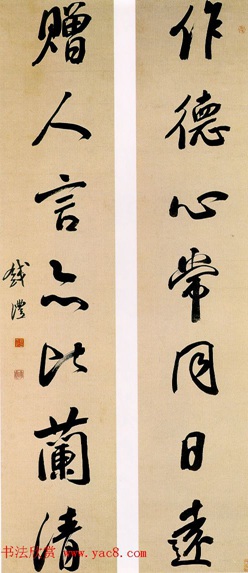 作德心常同日遠
贈人言亦比蘭清
书法欣赏 www.yac8.com